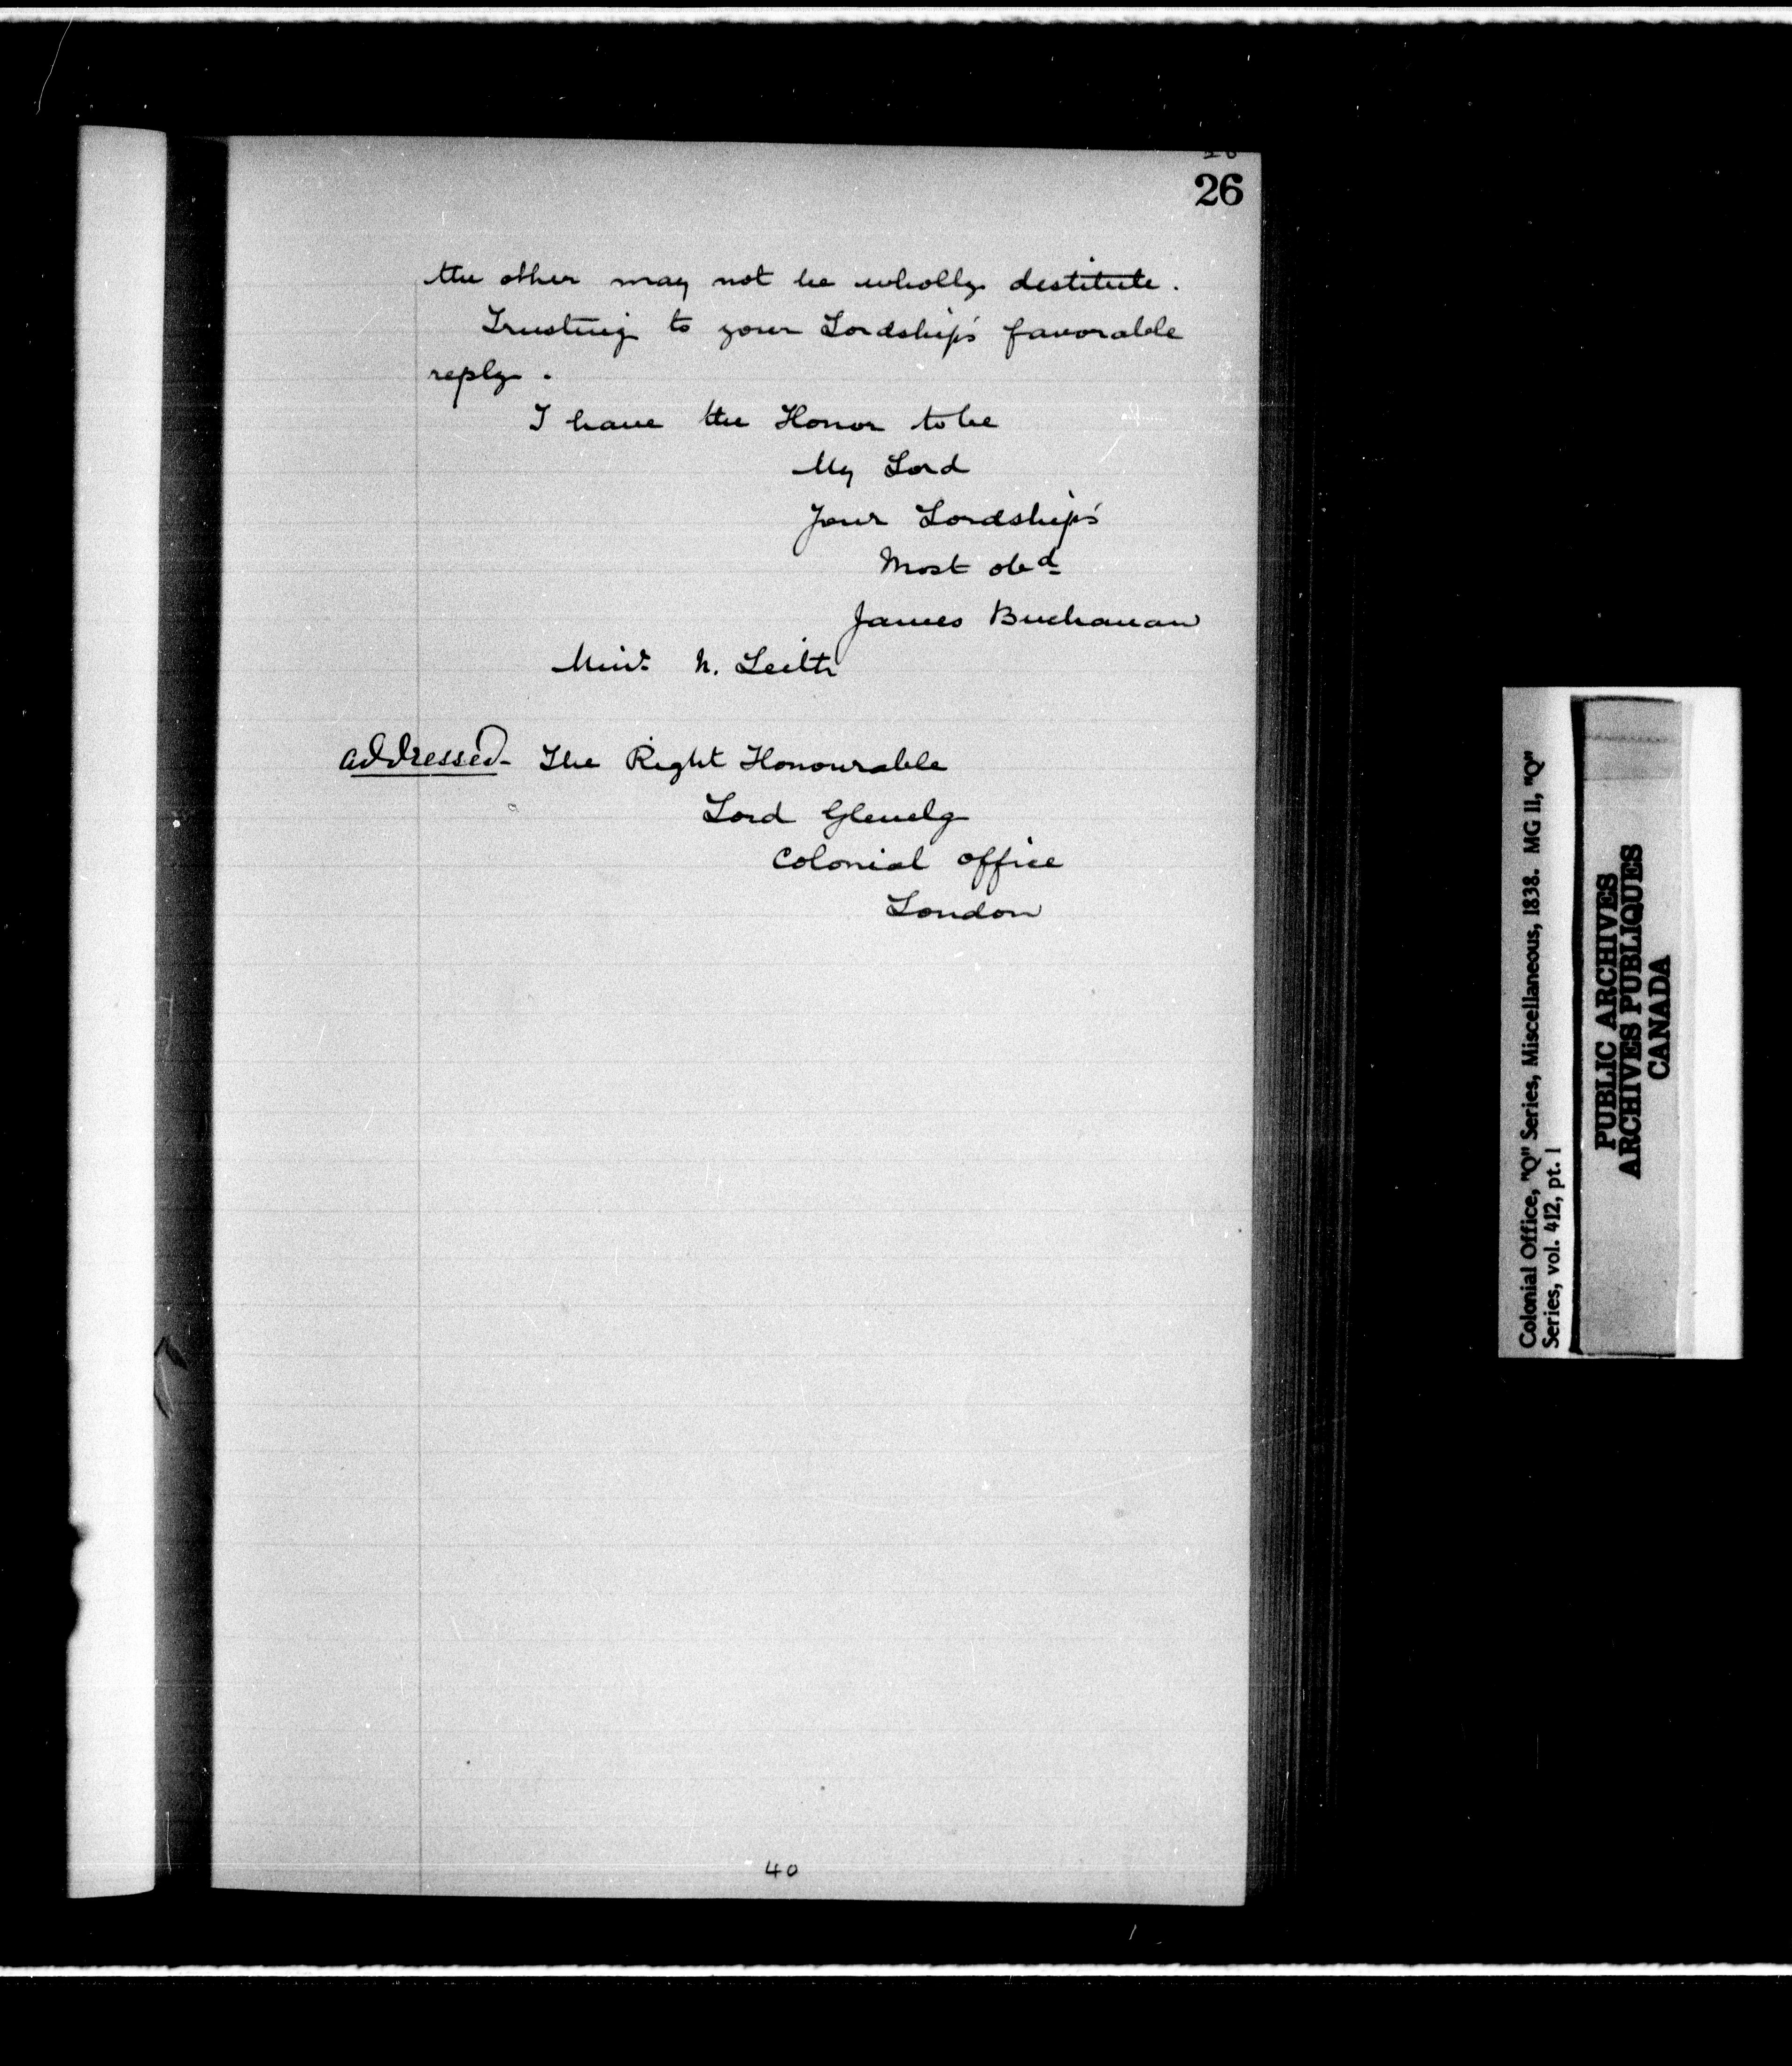 26
the other may not be wholly destitute.
Trusting to your Lordship's favorable
reply.
I have the Honor to be
My Lord
Your Lordship's
Most obd
James Buchanan
Minr N. Leith
Addressed - The Right Honourable
Lord Glenelg
Colonial Office
London
40
Colonial Office, "Q" Series, Miscellaneous, 1838. MG 11, "Q"
Series, vol. 412, pt. 1
PUBLIC ARCHIVES
ARCHIVES PUBLIQUES
CANADA